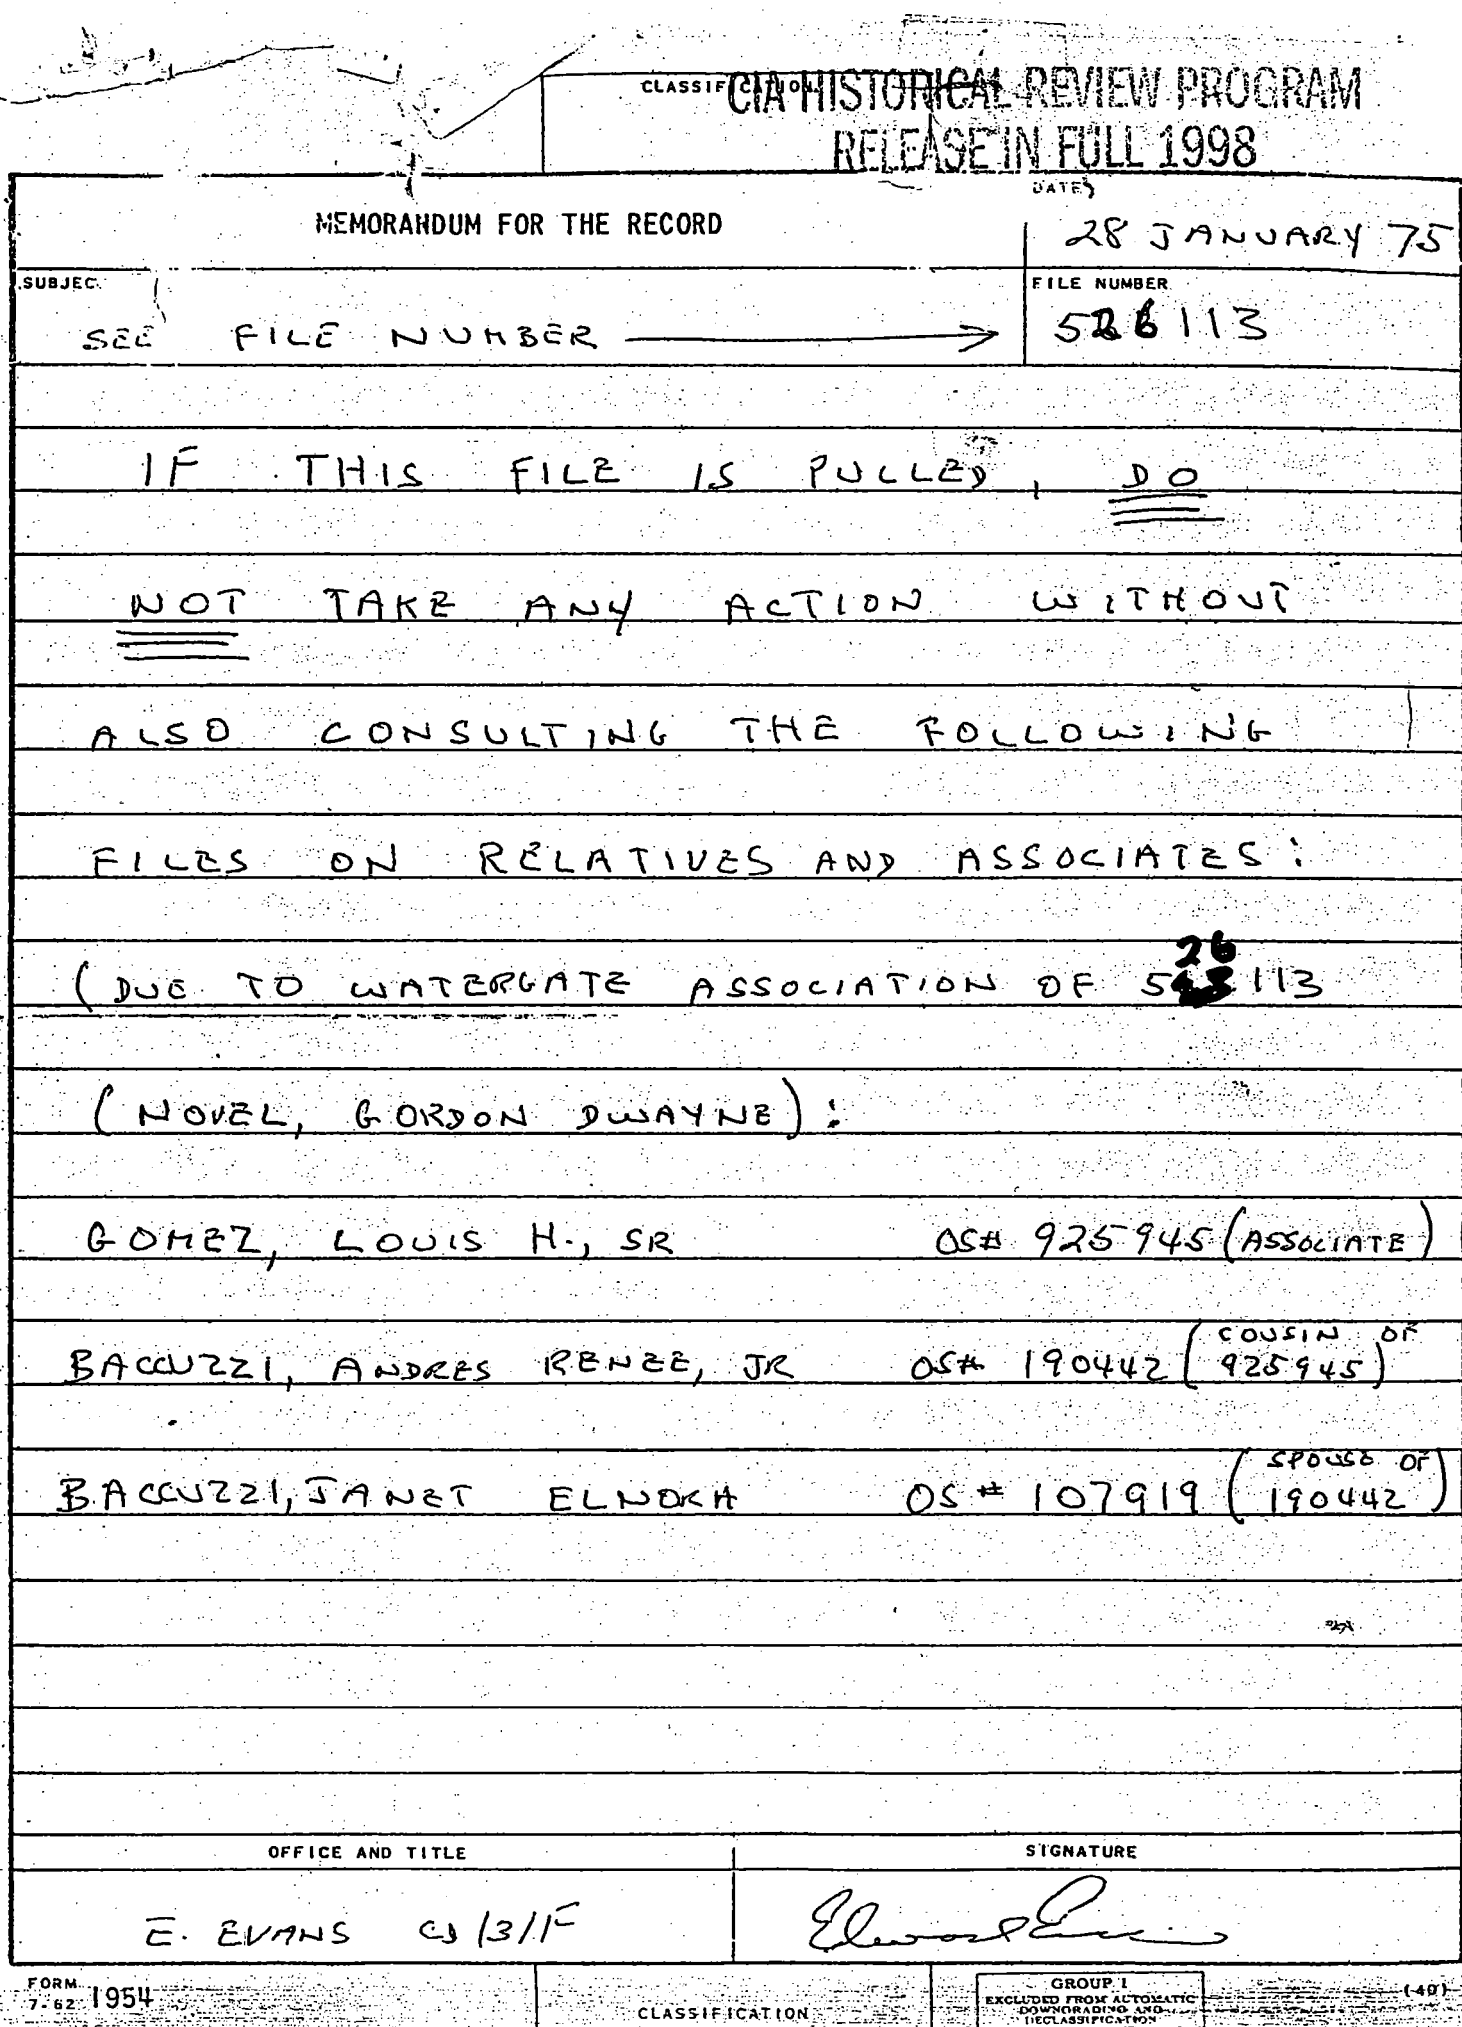 CLASSIFICATION
CIA HISTORICAL REVIEW PROGRAM
RELEASE IN FULL 1998
MEMORANDUM FOR THE RECORD
DATE
28 JANUARY 75
SUBJEC
FILE NUMBER
SEE FILE NUMBER
526113
IF THIS FILE IS PULLED, DO
NOT TAKE ANY ACTION WITHOUT
ALSO CONSULTING THE FOLLOWING
FILES ON RELATIVES AND ASSOCIATES:
(DUE TO WATERGATE ASSOCIATION OF 526113
(NOVEL, GORDON DWAYNE):
GOMEZ, LOUIS H., SR OS# 925945 (ASSOCIATE)
BACCUZZI, ANDRES RENEE, JR OS# 190442 (COUSIN OF 925945)
BACCUZZI, JANET ELNORA OS# 107919 (SPOUSE OF 190442)
OFFICE AND TITLE
SIGNATURE
E. EVANS /3/F
FORM 7-62 1954
CLASSIFICATION
GROUP 1
EXCLUDED FROM AUTOMATIC
DOWNGRADING AND
DECLASSIFICATION
(40)